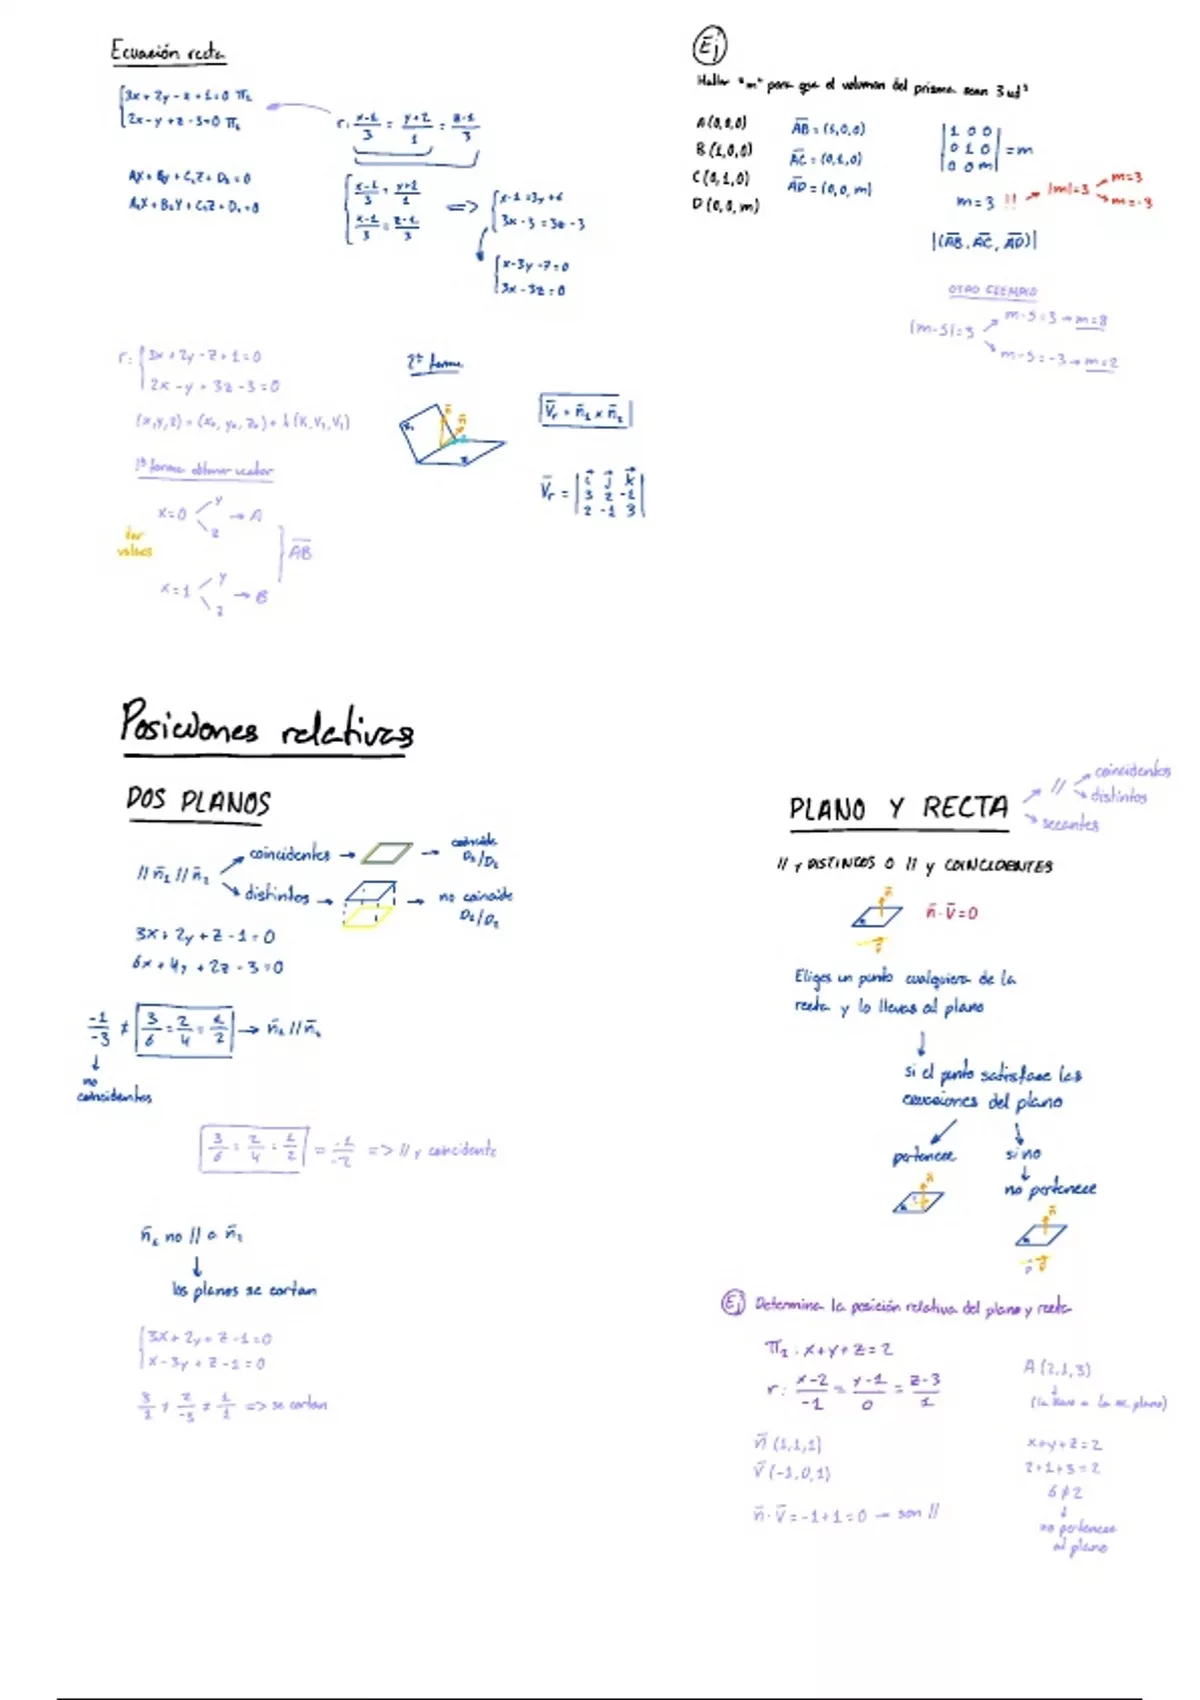 Ecuación recta
3x + 2y - z + 1 = 0 π₁
2x - y + z - 3 = 0 π₂
r: x-1/3 = y+2/1 = z-1/3
AX + By + C₁Z + D₁ = 0
A₂X + B₂Y + C₂Z + D₂ = 0
x-1/3 = y+2/1
x-1/3 = z-1/3
=>
x-1 = 3y+6
3x-3 = 3z-3
x-3y-7=0
3x-3z=0
r: 3x + 2y - z + 1 = 0
2x - y + 3z - 3 = 0
(x,y,z) = (x₀, y₀, z₀) + λ (V₁, V₁, V₁)
1ª forma obtener vector
x=0 y z → A
dar valores
AB
x=1 y z → B
2ª forma
V̄r = n̄₁ x n̄₂
V̄r = | i j k |
3 2 -1
2 -1 3
Ej
Hallar "m" para que el volumen del prisma sean 3 ud³
A (0,0,0)
B (1,0,0)
C (0,1,0)
D (0,0,m)
AB = (1,0,0)
AC = (0,1,0)
AD = (0,0,m)
1 0 0
0 1 0 = m
0 0 m
m = 3 !! → |m|=3 m=3 m=-3
|(AB, AC, AD)|
OTRO EJEMPLO
|m-5|=3 m-5=3 → m=8
m-5=-3 → m=2
Posiciones relativas
DOS PLANOS
// n̄₁ // n̄₂
coincidentes → → coincide D₁/D₂
distintos → → no coincide D₁/D₂
3x + 2y + z - 1 = 0
6x + 4y + 2z - 3 = 0
-1/-3 ≠ 3/6 = 2/4 = 1/2 → n̄₁ // n̄₂
no coincidentes
3/6 = 2/4 = 1/2 = -1/-2 => // y coincidente
n̄₁ no // a n̄₂
los planos se cortan
3x + 2y + z - 1 = 0
x - 3y + z - 1 = 0
3/1 ≠ 2/-3 ≠ 1/1 => se cortan
PLANO Y RECTA
// coincidentes
distintos
secantes
// y DISTINTOS O // y COINCIDENTES
n̄ · v̄ = 0
Eliges un punto cualquiera de la
recta y lo llevas al plano
si el punto satisface las
ecuaciones del plano
pertenece
si no
no pertenece
Ej Determina la posición relativa del plano y recta
π₁ : x+y+z=2
r: x-2/-1 = y-1/0 = z-3/1
n̄ (1,1,1)
v̄ (-1,0,1)
n̄ · v̄ = -1+1=0 → son //
A (2,1,3)
(la llevo a la ec. plano)
x+y+z=2
2+1+3=2
6≠2
no pertenece
al plano